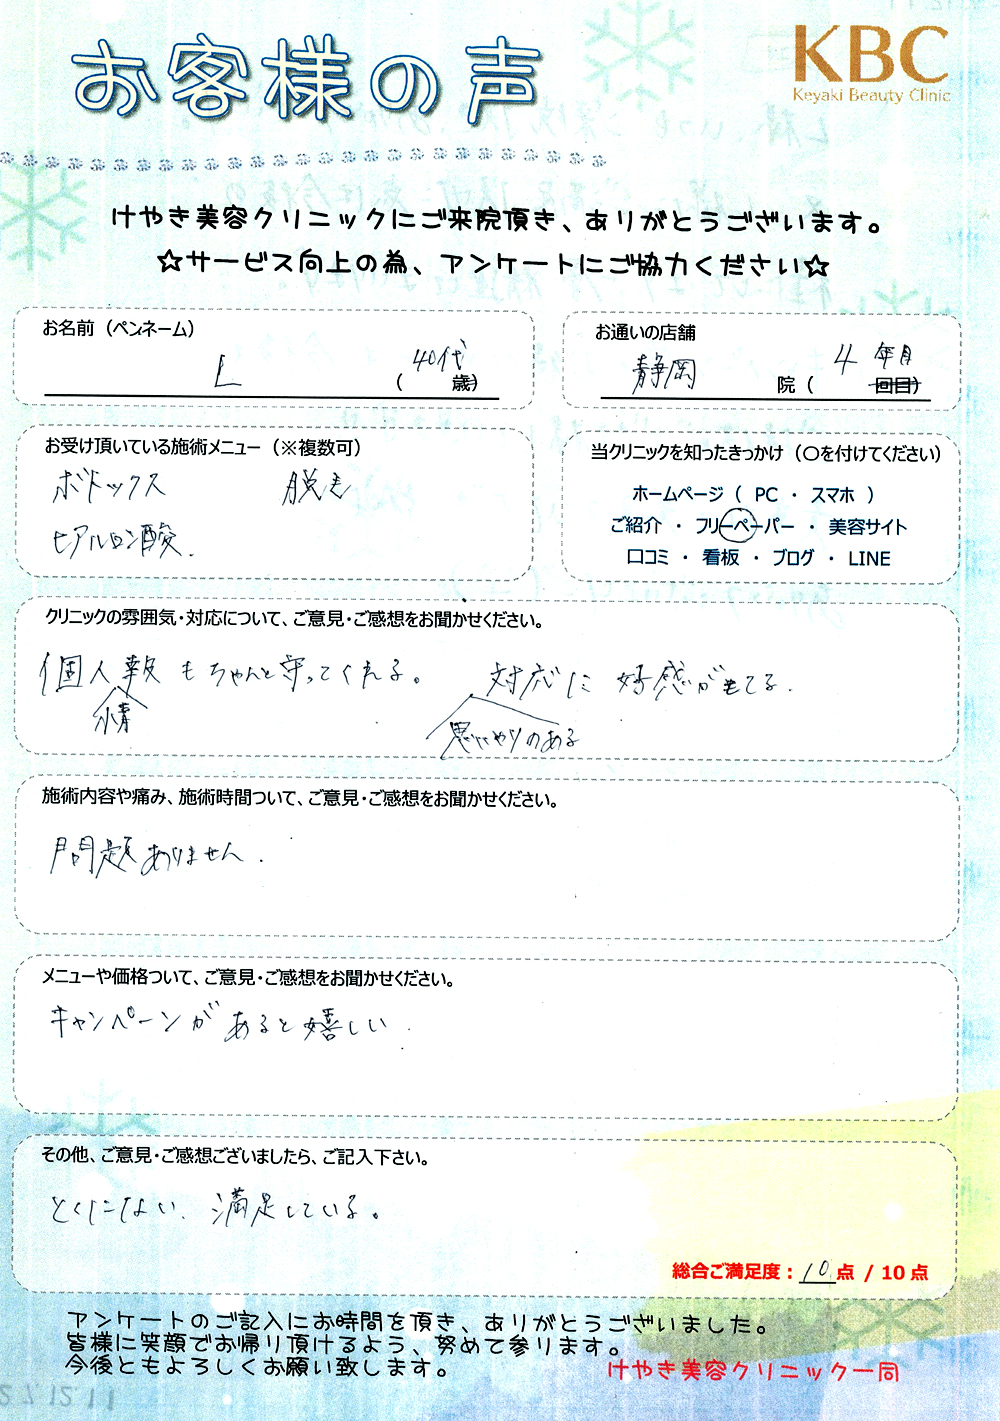 お客様の声
KBC
Keyaki Beauty Clinic
けやき美容クリニックにご来院頂き、ありがとうございます。
☆サービス向上の為、アンケートにご協力ください☆
お名前（ペンネーム）
L
（ 40代 歳）
お通いの店舗
静岡 院（ 4 年目 回目）
お受け頂いている施術メニュー（※複数可）
ボトックス 脱毛
ヒアルロン酸.
当クリニックを知ったきっかけ（〇を付けてください）
ホームページ（ PC ・ スマホ ）
ご紹介 ・ フリーペーパー ・ 美容サイト
口コミ ・ 看板 ・ ブログ ・ LINE
クリニックの雰囲気・対応について、ご意見・ご感想をお聞かせください。
個人報もちゃんと守ってくれる。 対応に好感がもてる.
情 思いやりのある
施術内容や痛み、施術時間ついて、ご意見・ご感想をお聞かせください。
問題ありません.
メニューや価格ついて、ご意見・ご感想をお聞かせください。
キャンペーンがあると嬉しい.
その他、ご意見・ご感想ございましたら、ご記入下さい。
とくにない. 満足している。
総合ご満足度：10点 / 10 点
アンケートのご記入にお時間を頂き、ありがとうございました。
皆様に笑顔でお帰り頂けるよう、努めて参ります。
今後ともよろしくお願い致します。
けやき美容クリニック一同